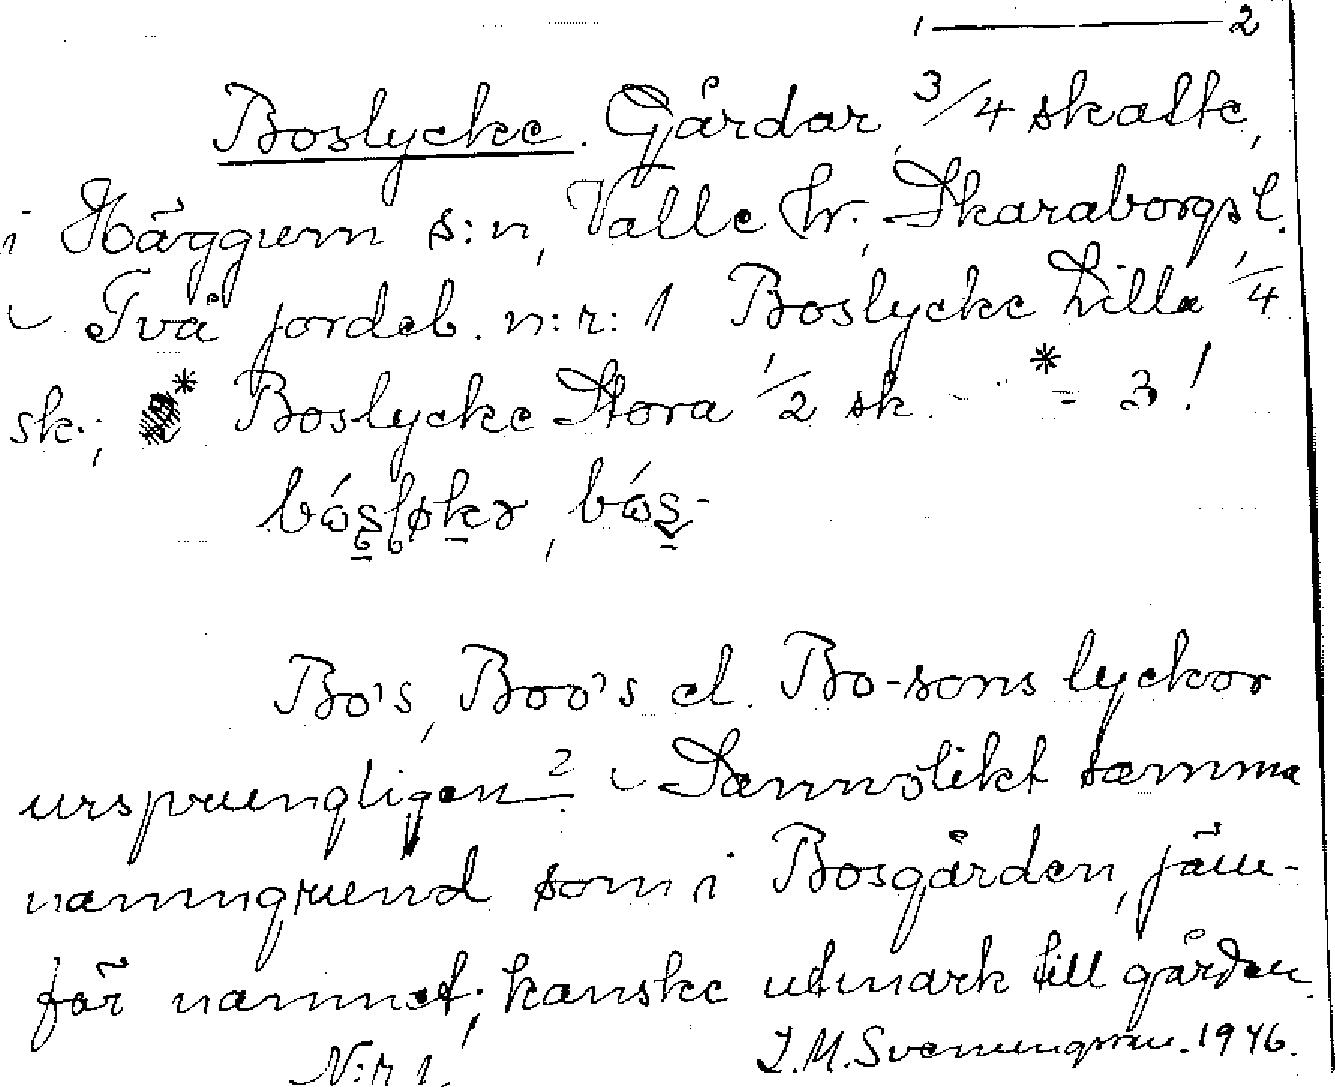 1 — 2
Boslycke. Gårdar, 3/4 skatte,
i Häggum s:n, Valle hr, Skaraborgs l.
– Två jordeb. n:r: 1 Boslycke Lilla 1/4
sk.; * Boslycke Stora 1/2 sk. – * = 3!
Bo's, Boo's el. Bo-sons lyckor
ursprungligen? – Sannolikt samma
namngrund som i Bosgården, jäm-
för namnet; kanske utmark till gården.
N:r 1.
J.M. Svenungsson. 1946.